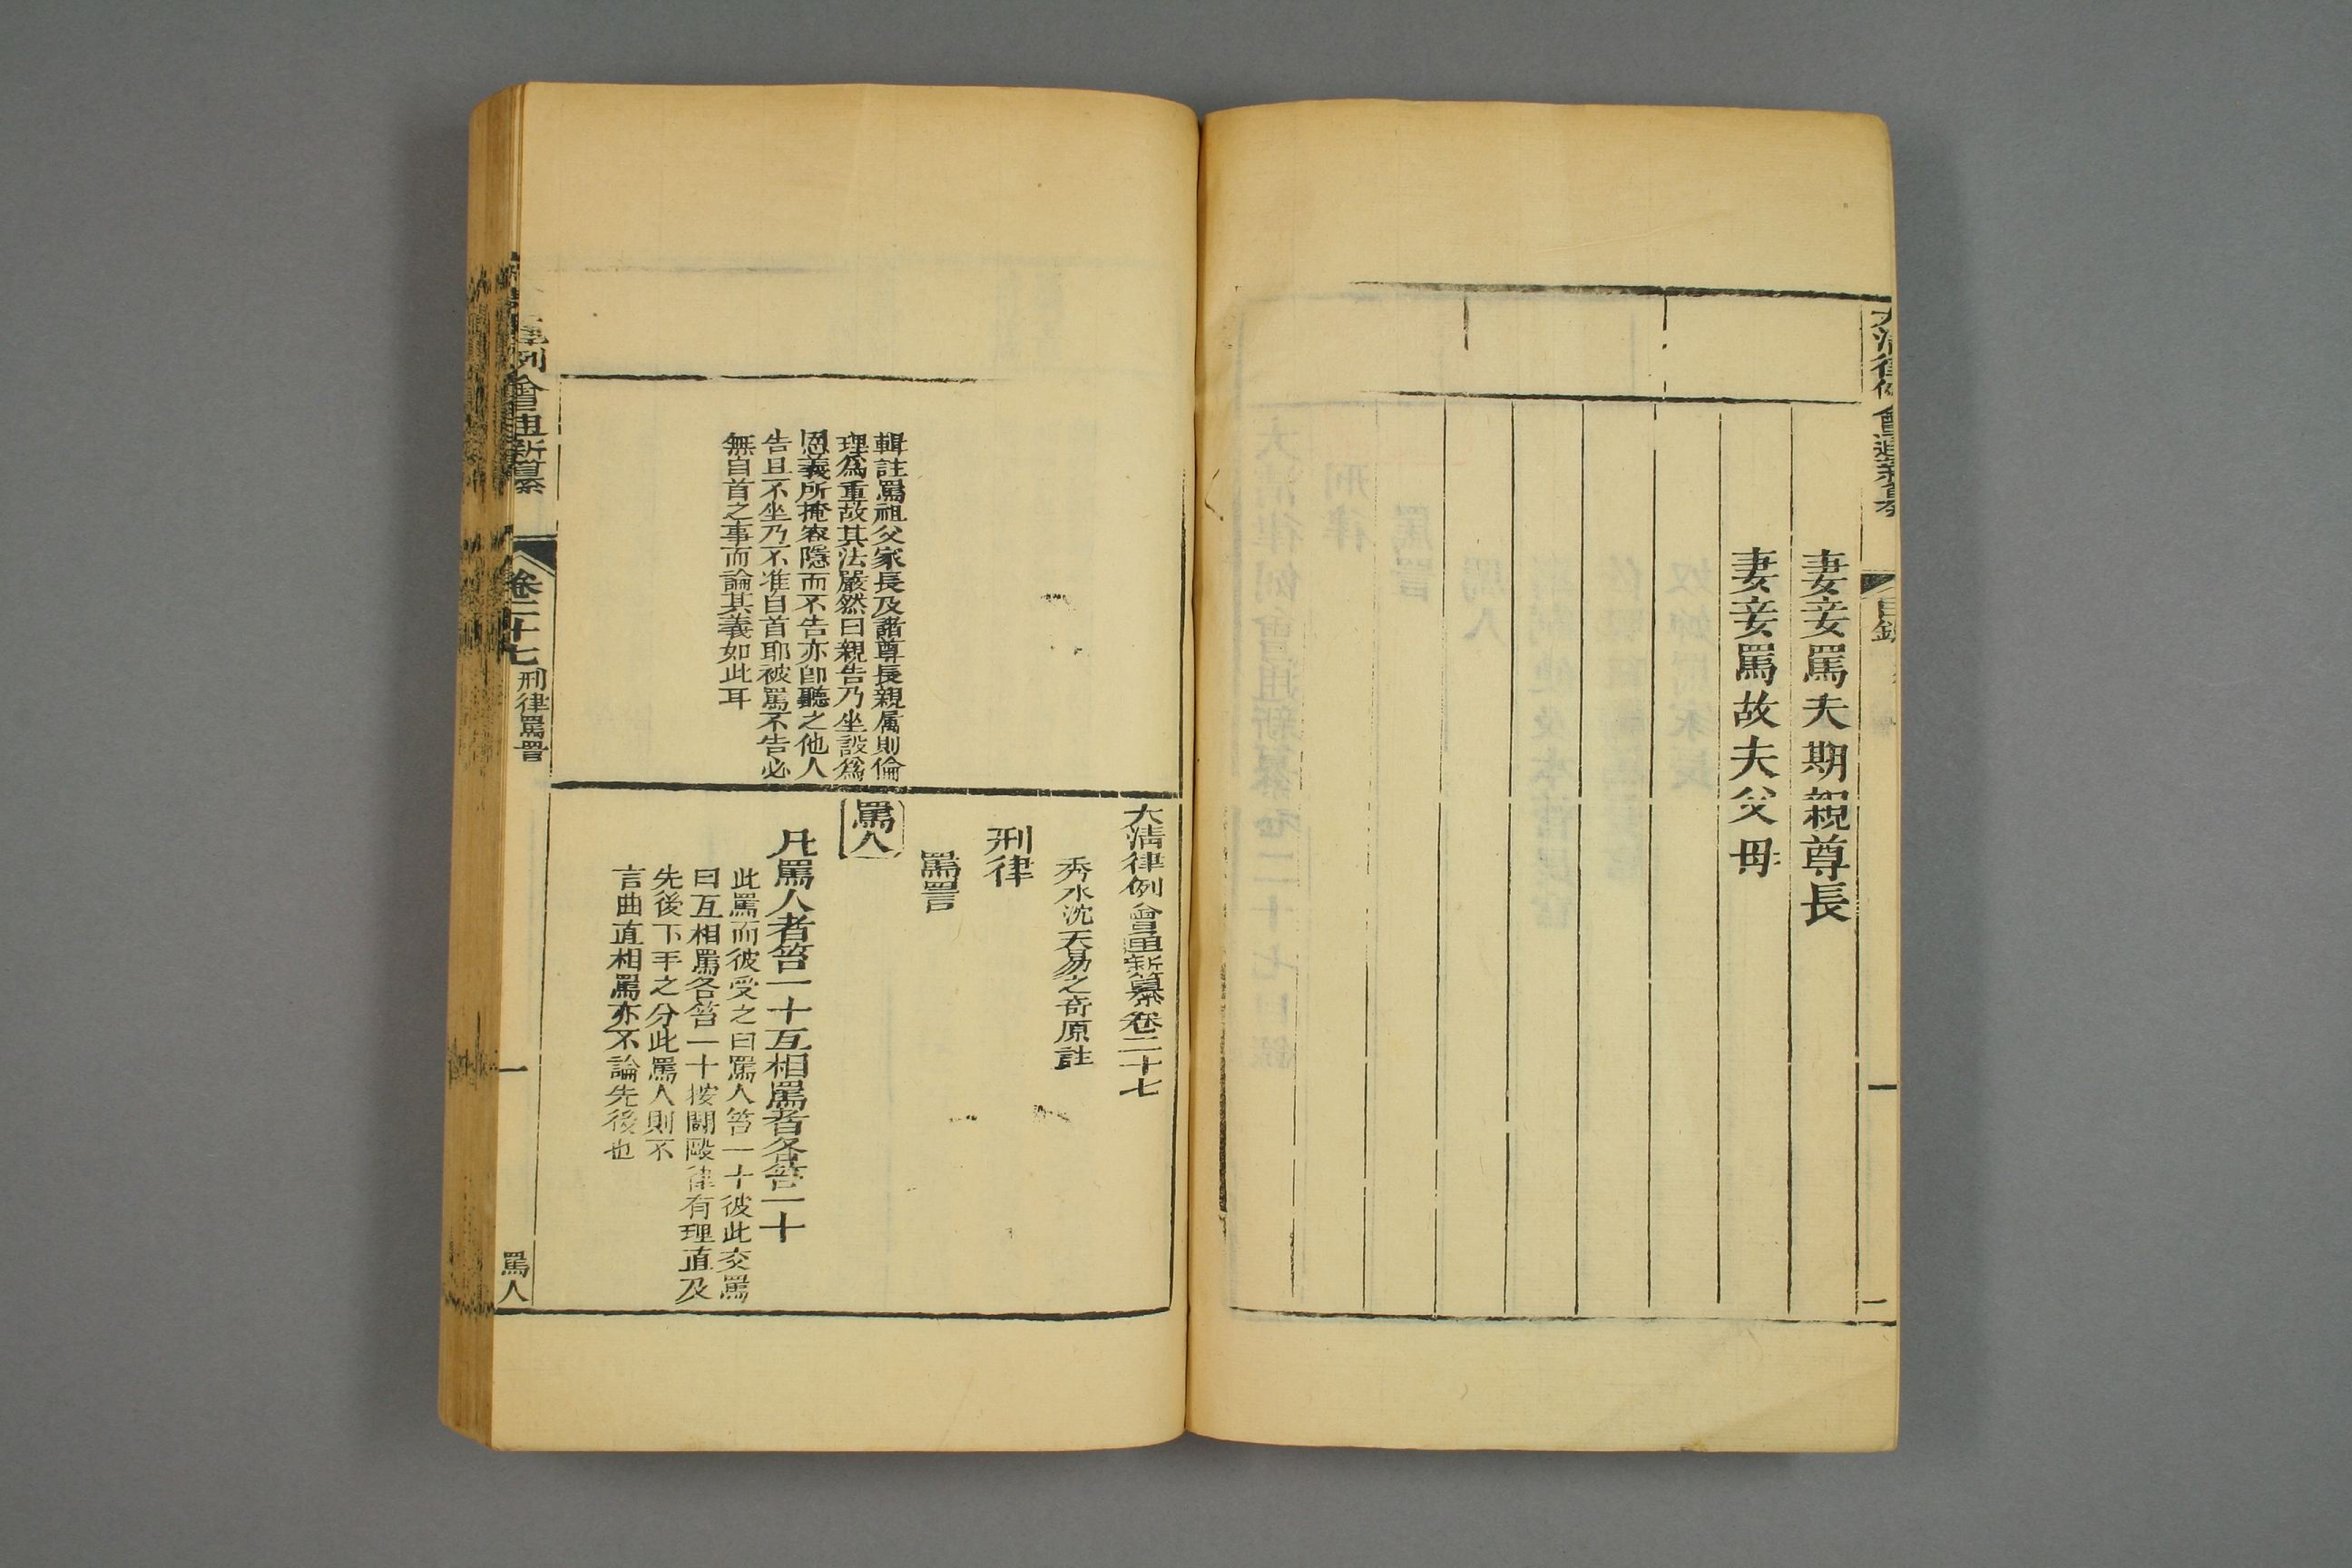 妻妾罵夫期親尊長
妻妾罵故夫父母
目錄
二
輯註罵祖父家長及諸尊長親属則倫
理為重故其法嚴然曰親告乃坐設為
恩義所掩容隱而不告亦卽聽之他人
告且不坐乃不准自首耶被罵不告必
無自首之事而論其義如此耳
大清律例會通新纂卷二十七
秀水沈天易之奇原註
刑律
罵詈
罵人
凡罵人者笞一十互相罵者各笞一十
此罵而彼受之曰罵人笞一十彼此交罵
曰互相罵各笞一十按鬪毆律有理直及
先後下手之分此罵人則不
言曲直相罵亦不論先後也
律例會通新纂
卷二十七
刑律罵詈
一
罵人